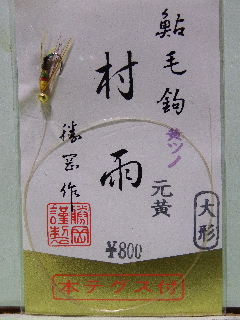 鮎毛鈎
黄ツノ
村雨
元黄
大形
勝岡作
勝岡謹製
¥800
本テグス付